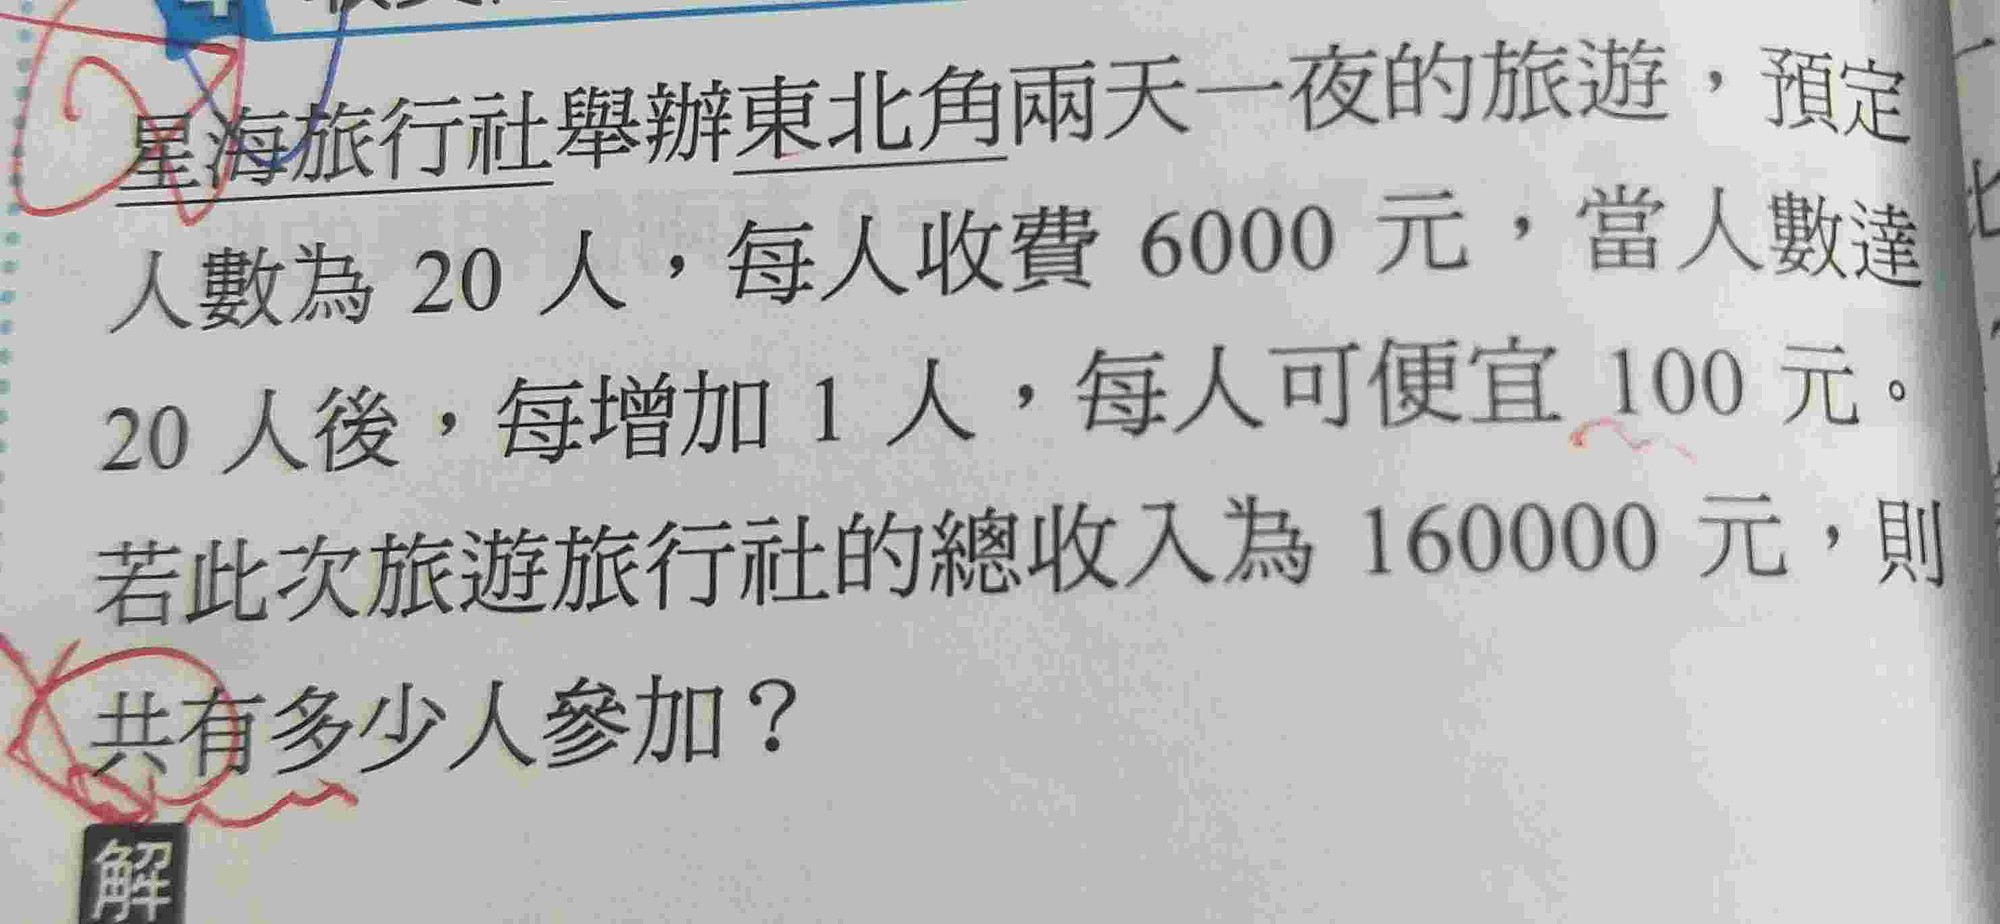 星海旅行社舉辦東北角兩天一夜的旅遊，預定
人數為 20 人，每人收費 6000 元，當人數達
20 人後，每增加 1 人，每人可便宜 100 元。
若此次旅遊旅行社的總收入為 160000 元，則
共有多少人參加？
解